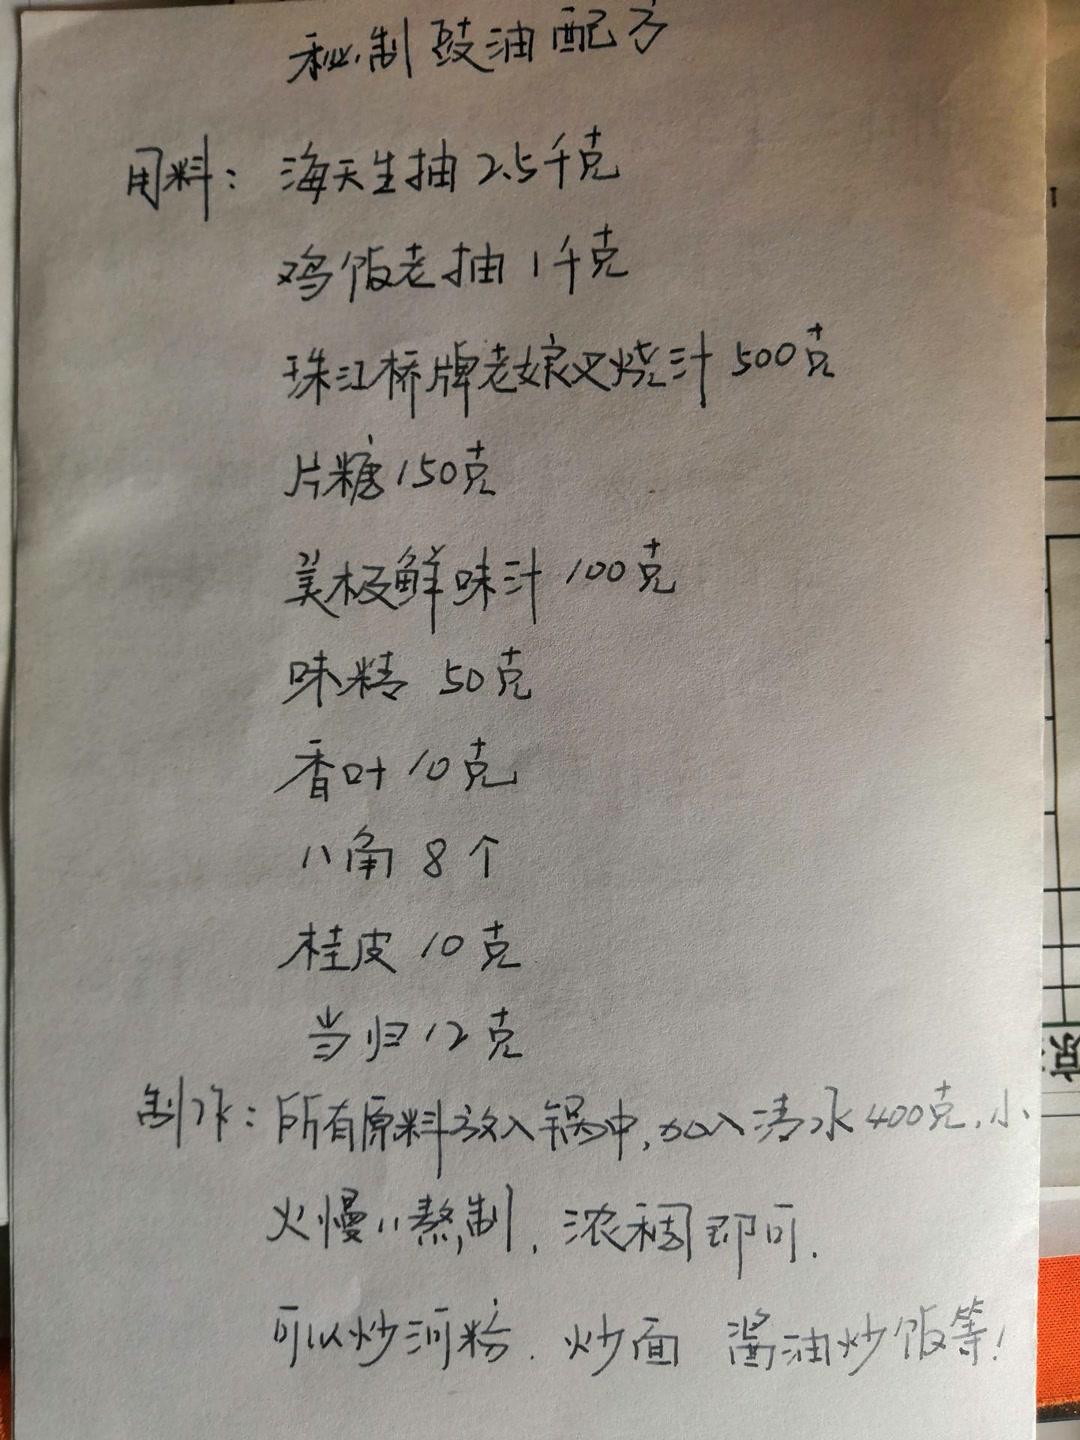 秘制豉油配方
用料：海天生抽2.5千克
鸡饭老抽1千克
珠江桥牌老娘叉烧汁500克
片糖150克
美极鲜味汁100克
味精 50克
香叶10克
八角 8个
桂皮10克
当归12克
制作：所有原料放入锅中，加入清水400克，小
火慢慢熬制，浓稠即可.
可以炒河粉.炒面 酱油炒饭等！